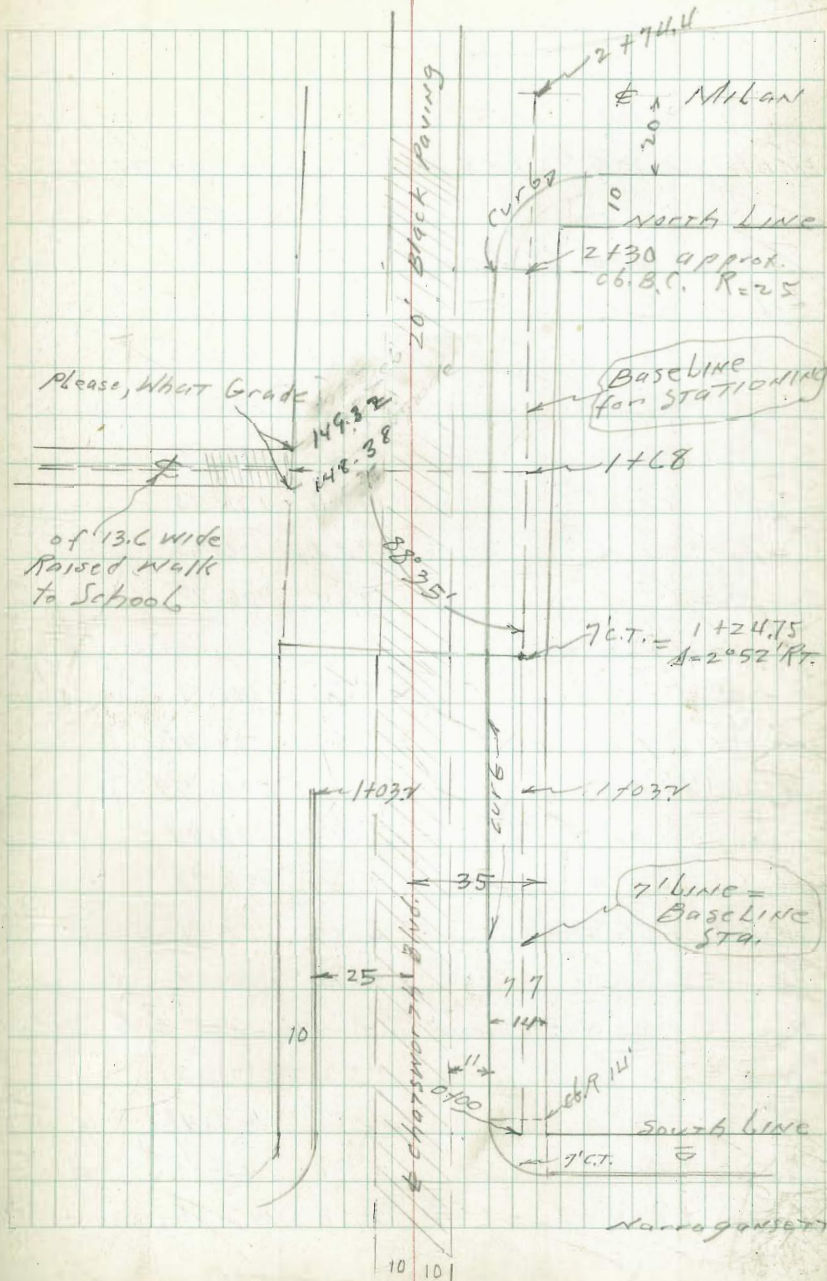 2+74.4
℄ Milan
20
20' Black Paving
curb
10
North Line
2+30 approx.
cb. B.C. R=25
BaseLine
for Stationing
Please, What Grade
149.32
148.38
1+68
℄
of 13.6 wide
Raised Walk
to School
88°35'
7'C.T. = 1+24.75
Δ=2°52' RT.
curb
1+03.2
1+03.2
35
7' Line =
BaseLine
STa.
25
7 7
14
10
11
0+00
cb.R 14'
South Line
7'C.T.
℄ Chatsworth Blvd.
Narragansett
10 10